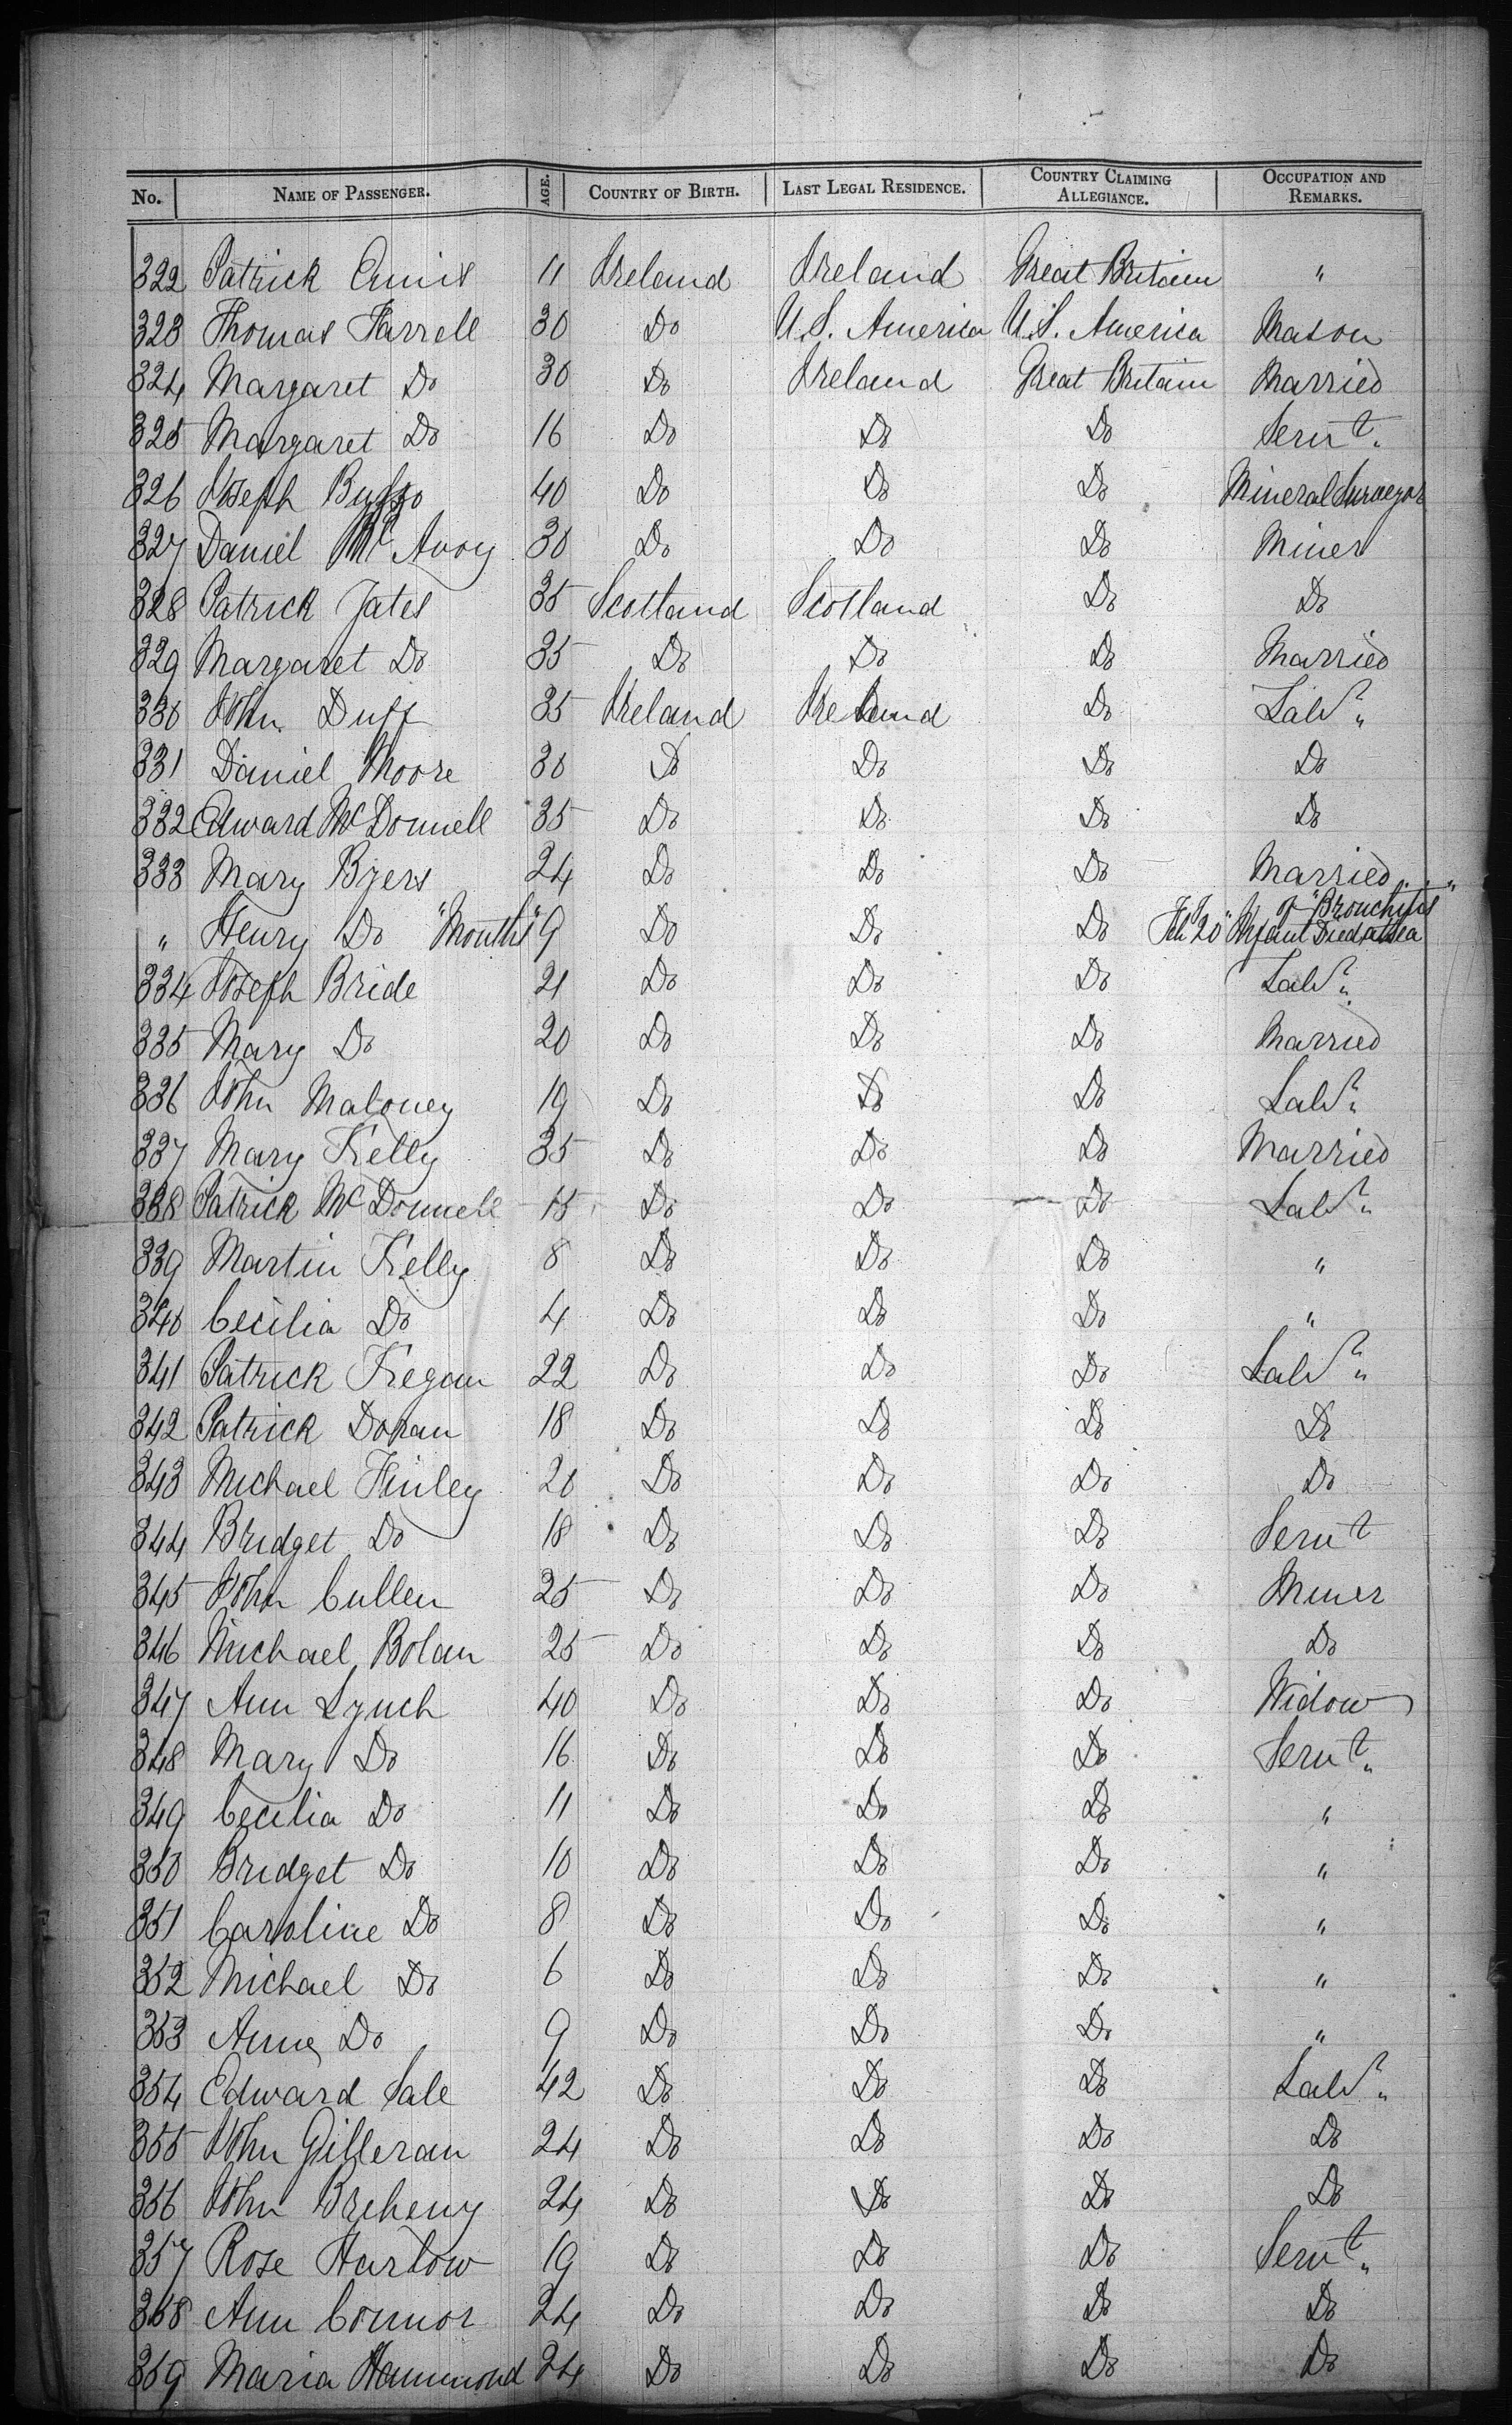 No. NAME OF PASSENGER. AGE. COUNTRY OF BIRTH. LAST LEGAL RESIDENCE. COUNTRY CLAIMING ALLEGIANCE. OCCUPATION AND REMARKS.
322 Patrick 11 Ireland Ireland Great Britain "
323 Thomas Farrell 30 Do U.S. America U.S. America Mason
324 Margaret Do 30 Do Ireland Great Britain Married
325 Margaret Do 16 Do Do Do Servt.
326 Joseph 40 Do Do Do Mineral Surveyor
327 Daniel McAvoy 30 Do Do Do Miner
328 Patrick Yates 35 Scotland Scotland Do Do
329 Margaret Do 35 Do Do Do Married
330 John Duff 35 Ireland Ireland Do Labr.
331 Daniel Moore 30 Do Do Do Do
332 Edward McDonnell 35 Do Do Do Do
333 Mary Byers 24 Do Do Do Married
" Henry Do "Months" 9 Do Do Do Feb 20" Infant Died at Sea of "Bronchitis"
334 Joseph Bride 21 Do Do Do Labr.
335 Mary Do 20 Do Do Do Married
336 John Maloney 19 Do Do Do Labr.
337 Mary Kelly 35 Do Do Do Married
338 Patrick McDonnell 15 Do Do Do Labr.
339 Martin Kelly 8 Do Do Do "
340 Cecilia Do 4 Do Do Do "
341 Patrick Kegan 22 Do Do Do Labr.
342 Patrick Doran 18 Do Do Do Do
343 Michael Finley 20 Do Do Do Do
344 Bridget Do 18 Do Do Do Servt
345 John Cullen 25 Do Do Do Miner
346 Michael Bolan 25 Do Do Do Do
347 Ann Lynch 40 Do Do Do Widow
348 Mary Do 16 Do Do Do Servt.
349 Cecilia Do 11 Do Do Do "
350 Bridget Do 10 Do Do Do "
351 Caroline Do 8 Do Do Do "
352 Michael Do 6 Do Do Do "
353 Anne Do 9 Do Do Do "
354 Edward Sale 42 Do Do Do Labr.
355 John Gilleran 24 Do Do Do Do
356 John Breheny 24 Do Do Do Do
357 Rose Hartow 19 Do Do Do Servt.
358 Ann Connor 24 Do Do Do Do
359 Maria Hammond 24 Do Do Do Do